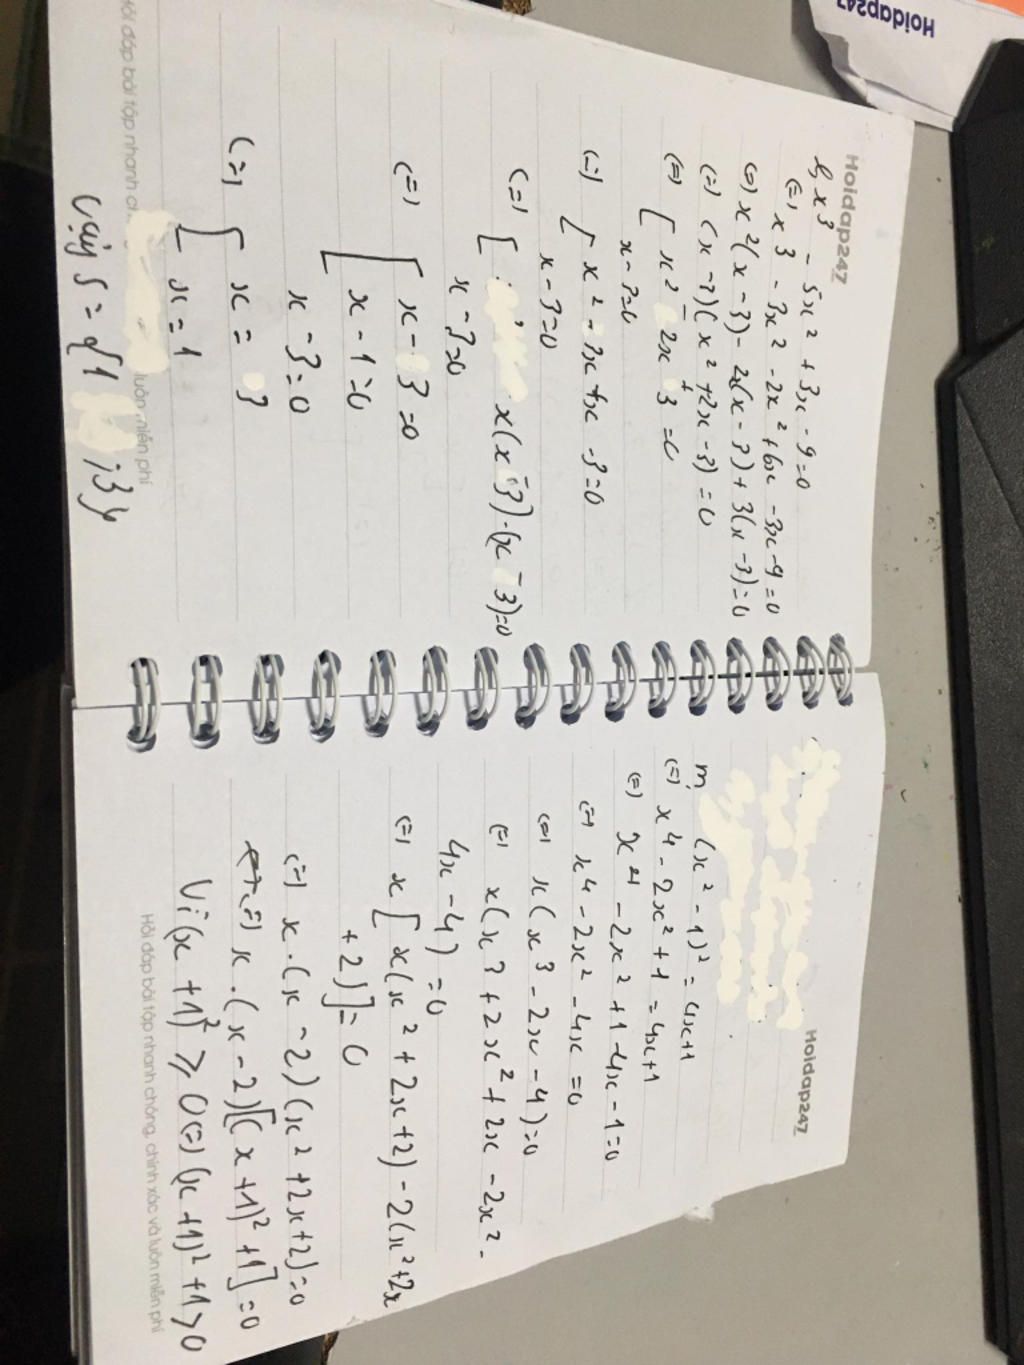 Hoidap247
Hoidap247
l, x3 - 5x² + 3x - 9 = 0
(=) x3 - 3x² - 2x² + 6x - 3x - 9 = 0
(=) x2(x - 3) - 2x(x - 3) + 3(x - 3) = 0
(=) (x - 3)(x² + 2x - 3) = 0
(=) [ x² - 2x + 3 = 0
x - 3 = 0
(=) [ x² - 3x + x - 3 = 0
x - 3 = 0
(=) [ x(x - 3) - (x - 3) = 0
x - 3 = 0
(=) [ x - 3 = 0
[ x - 1 = 0
x - 3 = 0
(=) [ x = 3
[ x = 1
Vậy S = {1 ; 3}
Hỏi đáp bài tập nhanh luôn miễn phí
Hoidap247
m, (x² - 1)² = 4x + 1
(=) x4 - 2x² + 1 = 4x + 1
(=) x4 - 2x² + 1 - 4x - 1 = 0
(=) x4 - 2x² - 4x = 0
(=) x(x3 - 2x - 4) = 0
(=) x(x3 + 2x² + 2x - 2x² -
4x - 4) = 0
(=) x[x(x² + 2x + 2) - 2(x² + 2x
+ 2)] = 0
(=) x.(x - 2)(x² + 2x + 2) = 0
(=) x.(x - 2)[(x + 1)² + 1] = 0
Vì (x + 1)² ≥ 0 (=) (x + 1)² + 1 > 0
Hỏi đáp bài tập nhanh chóng, chính xác và luôn miễn phí